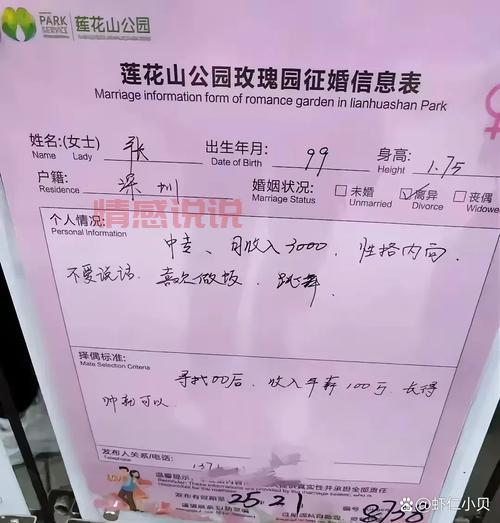 PARK SERVICE 莲花山公园
莲花山公园玫瑰园征婚信息表
Marriage information form of romance garden in lianhuashan Park
姓名:(女士) 张 出生年月: 99 身高: 1.75
Name Lady Date of Birth Height
户籍: 深圳 婚姻状况: 未婚 离异 丧偶
Residence Marriage Status Unmarried Divorce Widowe
情感说说
个人情况:
Personal Information
中专、月收入3000、性格内向
不爱说话、喜欢做饭、跳舞
择偶标准:
Mate Selection Criteria
寻找00后、收入年薪100万、长得
帅就可以
发布人关系/电话:
Telephone
137
温馨提示:
发布有效期至 2521 编号 8728
@虾仁小贝